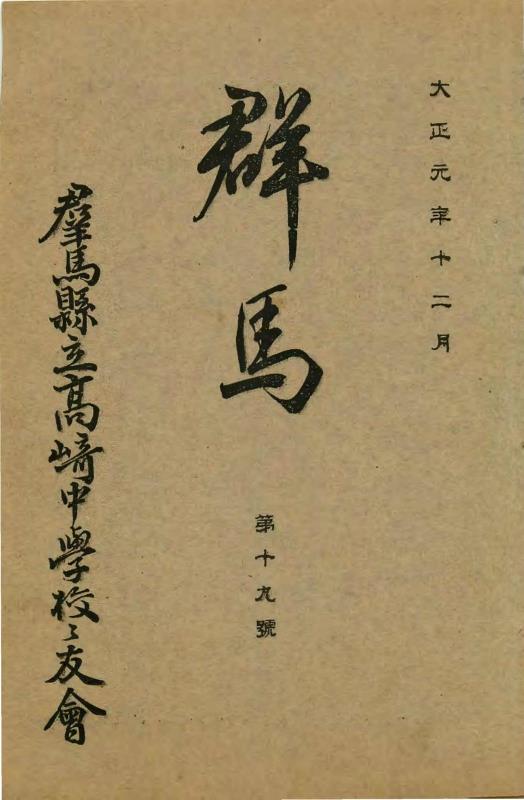 大正元年十二月
群馬
第十九號
羣馬縣立高崎中學校々友會